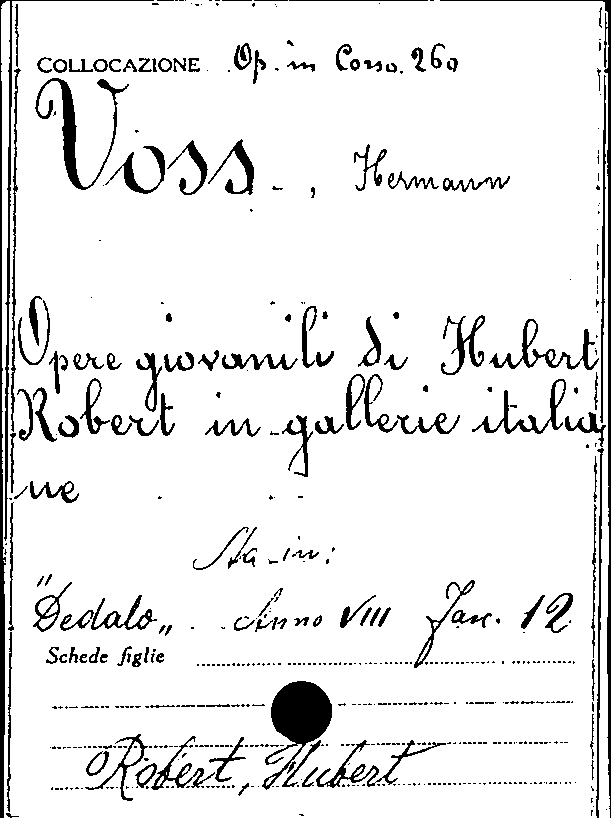 COLLOCAZIONE Op. in Corso. 260
Voss_ , Hermann
Opere giovanili di Hubert
Robert in gallerie italia
ne
Sta in:
"Dedalo„ Anno VIII Fasc. 12
Schede figlie
Robert, Hubert